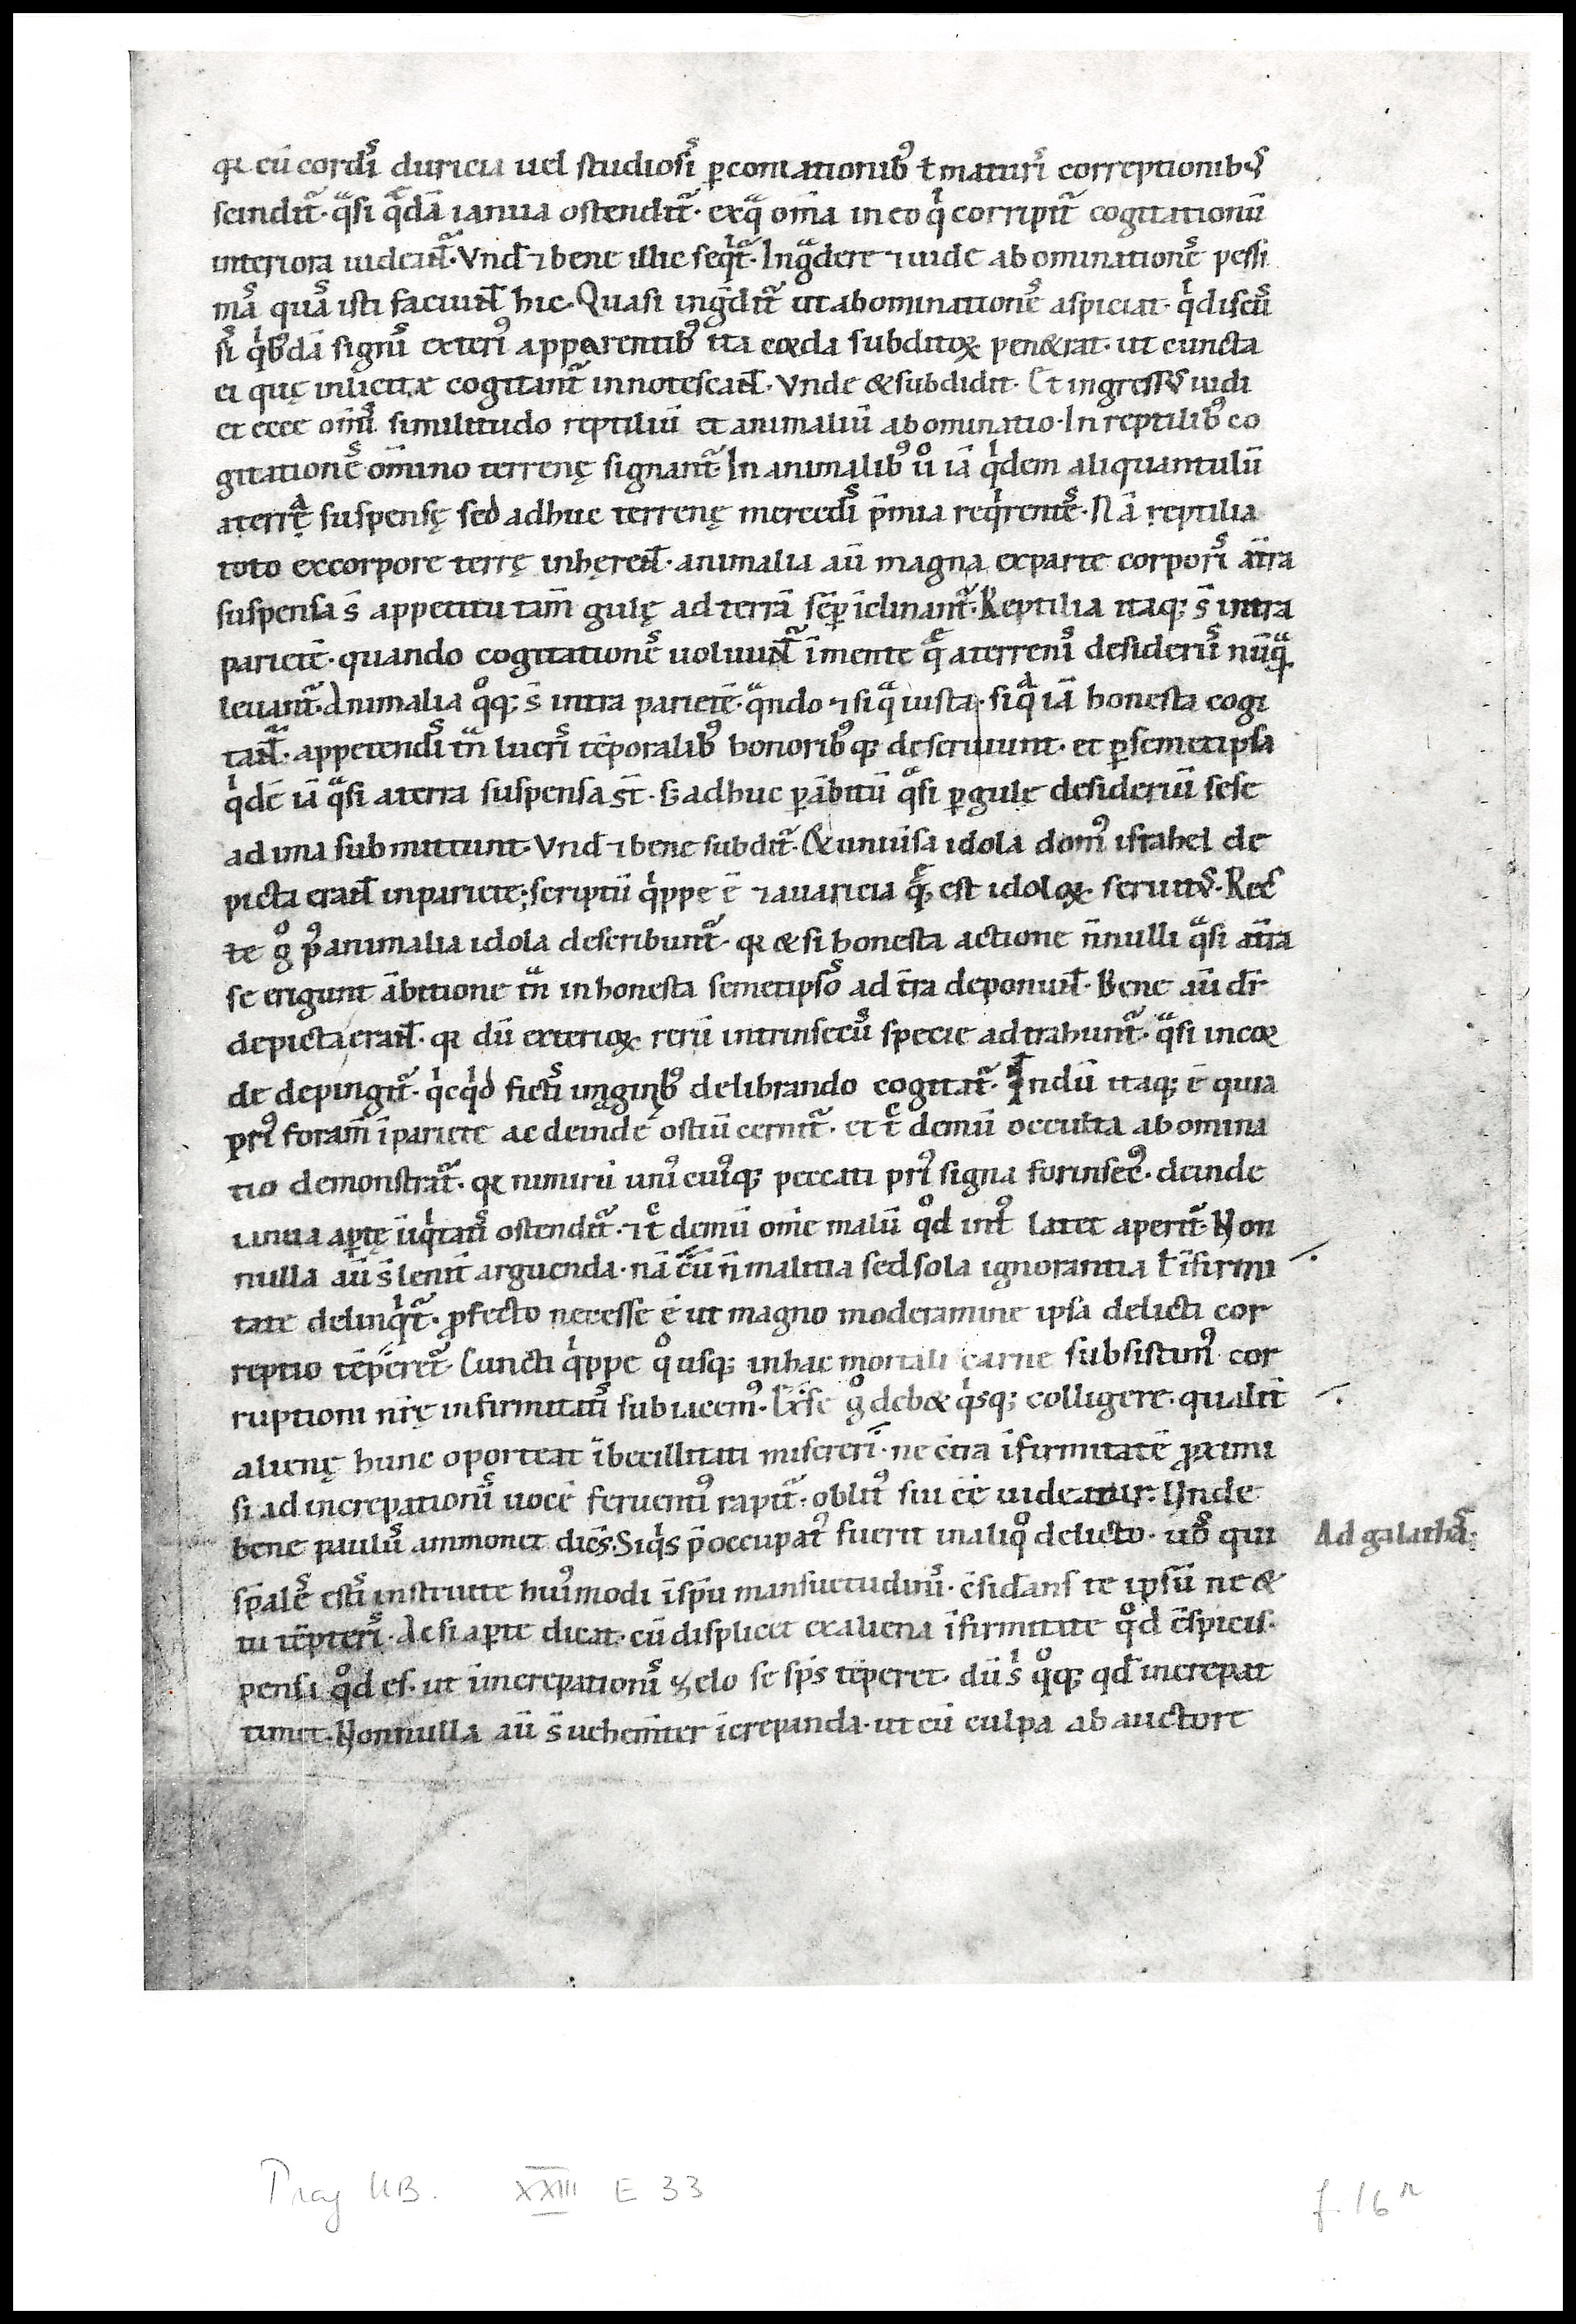 qꝛ cū cordiˢ duricia uel studiosiˢ ꝑcontationibꝰ ł maturiˢ correptionibꝰ
scinditᷣ · qͣsi qᷓdā ianua ostenditᷣ · exqͣ om̄ia in eo qͥ corripitᷣ cogitationū
interiora uideant᷒ · Vnd̄ ⁊ bene illic seqͥtᷣ · Ingͣdere ⁊ uide abominationeˢ pessi
maˢ quaˢ isti faciunt hic · Quasi ingͣditᷣ ut abominationeˢ aspiciat · qͥ discuˢ
siˢ qͥbꝰdā signiˢ exteriꝰ apparentibꝰ ita corda subditoꝝ pen&rat · ut cuncta
ei quę inlicitæ cogitantᷣ innotescant · Vnde & subdidit · Et ingressꝰ uidi
et ecce om̄iˢ similitudo reptiliū et animaliū abominatio · In reptilibꝰ co
gitationeˢ om̄ino terrenę signantᷣ · In animalibꝰ ů iā qͥdem aliquantulū
a terrę suspensę sed adhuc terrenę mercediˢ p̄mia reqͥrenteˢ · Nā reptilia
toto excorpore terrę inhęrent · animalia aū magna exparte corporiˢ at̄ra
suspensa s̄ appetitu tam̄ gulę ad terrā sēꝑ īclinantᷣ · Reptilia itaqꝫ s̄ intra
parietē · quando cogitationeˢ uoluuntᷣ īmente qᷓ aterreniˢ desideriiˢ nūqͣ
leuantᷣ · Animalia qͦqꝫ s̄ intra parietē · qͣndo ⁊ siqͣ iusta · siqͣ iā honesta cogi
tantᷣ · appetendiˢ tn̄ lucriˢ tēporalibꝰ honoribꝰqꝫ deseruiunt · et ꝑ semetipsa
qͥdē iā qͣsi aterra suspensa st̄ · s̄ adhuc ꝑ ābitū qͣsi ꝑ gulę desideriū sese
ad ima submittunt · Vnd̄ ⁊ bene subditᷣ · & uniūsa idola domꝰ israhel de
picta erant inpariete; scriptū qͥppe ē ⁊ auaricia qᷓ est idoloꝝ seruitꝰ · Rec
te gͦ pꝰ animalia idola describuntᷣ · qꝛ & si honesta actione n̄nulli qͣsi at̄ra
se erigunt ābitione tn̄ inhonesta semetipsoˢ ad t̄ra deponunt · Bene aū dr̄
depicta erant · qꝛ dū exterioꝝ rerū intrinsecuˢ specie adtrahuntᷣ · qͣsi incor
de depingitᷣ · qͥcqͥd fictiˢ imaginibꝰ delibrando cogitatᷣ · Notandū itaqꝫ ē quia
priꝰ foram̄ īpariete ac deinde ostiū cernitᷣ · et tͨ demū occulta abomina
tio demonstratᷣ · qꝛ nimirū uniꝰcuiꝰqꝫ peccati priꝰ signa forinsecꝰ · deinde
ianua aꝑtę iīqͥtatiˢ ostenditᷣ · ⁊ tͨ demū om̄e malū qͦd intꝰ latet aperitᷣ · Non
nulla aū s̄ lenit̄ arguenda · nā cū n̄ malitia sed sola ignorantia ł īfirmi
tate delinqͥtᷣ · ꝓfecto necesse ē ut magno moderamine ipsa delicti cor
reptio tēperetᷣ · Cuncti qͥppe qͦusqꝫ inhac mortali carne subsistimꝰ cor
ruptioni nr̄ę infirmitatiˢ subiacemꝰ · Ex se gͦ deb& qͥsqꝫ colligere · qualit̄
alienę hunc oporteat ībecillitati misereri · ne ctra īfirmitatē ꝓximi
si ad increpationiˢ uocē feruentiꝰ rapitᷣ · oblitꝰ sui ēē uideatur · Vnde
bene pauluˢ ammonet dicēˢ · Siqͥs p̄occupatꝰ fuerit inaliqͦ delicto · uoˢ qui
sp̄aleˢ estiˢ instruite huiꝰmodi īsp̄u mansuetudiniˢ · c̄sid̄ans te ipsū ne &
tu tēpteriˢ · Ac si aꝑte dicat · cū displicet ex aliena īfirmitate qͦd c̄spicis ·
pensa qͦd es · ut īncrepationiˢ zelo se sp̄s tēperet · dū sͥ qͦqꝫ qd̄ increpat
timet · Nonnulla aū s̄ uehem̄ter īcrepanda · ut cū culpa ab auctore
Ad galathaˢ ·
Prag UB. XXIII E 33
f. 16ʳ